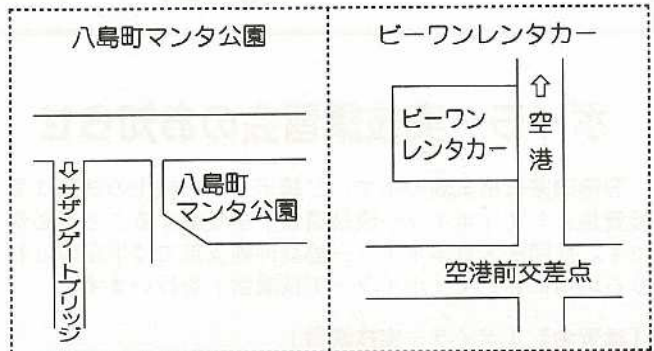 八島町マンタ公園
⇩サザンゲートブリッジ
八島町
マンタ公園
ビーワンレンタカー
ビーワン
レンタカー
⇧空港
空港前交差点